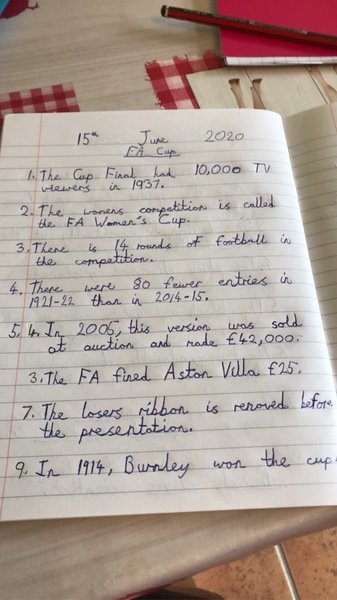 15th June 2020
FA Cup
1. The Cup Final had 10,000 TV
viewers in 1937.
2. The womens competition is called
the FA Women's Cup.
3. There is 14 rounds of football in
the competition.
4. There were 80 fewer entries in
1921-22 than in 2014-15.
5. 4. In 2005, this version was sold
at auction and made £42,000.
3. The FA fined Aston Villa £25.
7. The losers ribbon is removed before
the presentation.
9. In 1914, Burnley won the cup